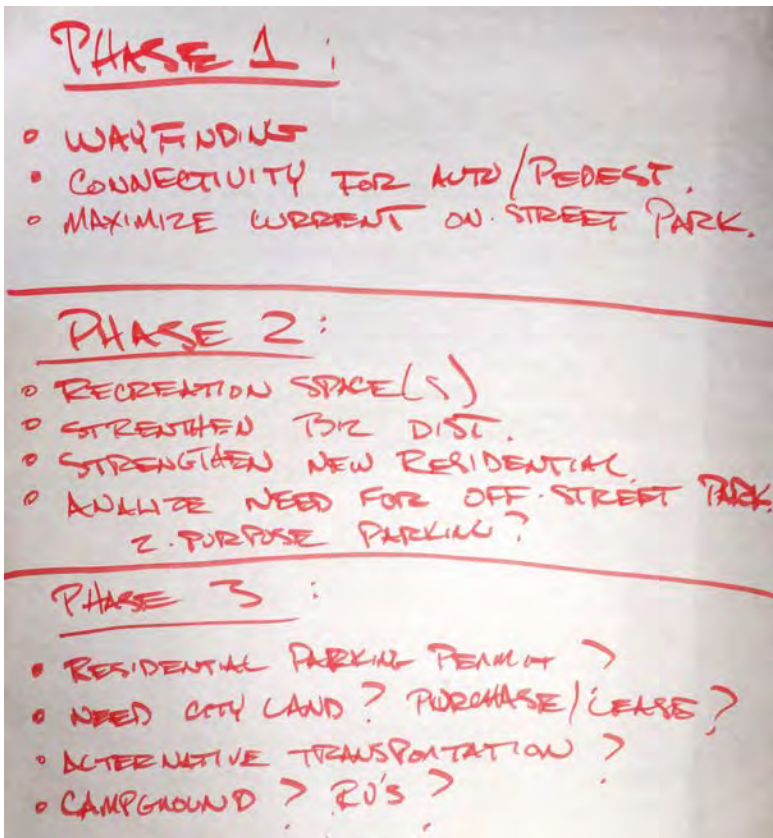 PHASE 1:
• WAYFINDING
• CONNECTIVITY FOR AUTO/PEDEST.
• MAXIMIZE CURRENT ON.STREET PARK.
PHASE 2:
• RECREATION SPACE(S)
• STRENTHEN BIZ DIST.
• STRENGTHEN NEW RESIDENTIAL.
• ANALIZE NEED FOR OFF.STREET PARK.
2.PURPOSE PARKING?
PHASE 3:
• RESIDENTIAL PARKING PERMIT?
• NEED CITY LAND? PURCHASE/LEASE?
• ALTERNATIVE TRANSPORTATION?
• CAMPGROUND? RV'S?